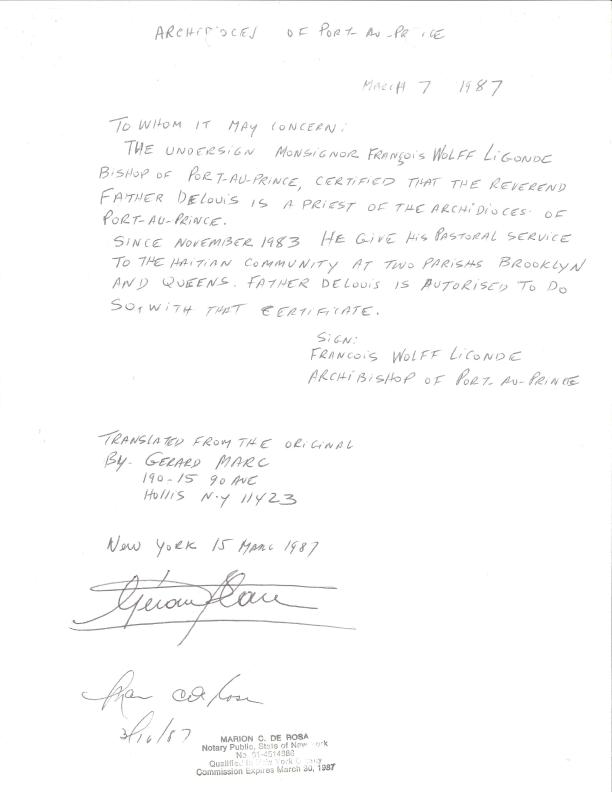 ARCHIDIOCES OF PORT-AU-PRINCE
MARCH 7 1987
TO WHOM IT MAY CONCERN:
THE UNDERSIGN MONSIGNOR FRANÇOIS WOLFF LIGONDE
BISHOP OF PORT-AU-PRINCE, CERTIFIED THAT THE REVEREND
FATHER DELOUIS IS A PRIEST OF THE ARCHIDIOCES OF
PORT-AU-PRINCE.
SINCE NOVEMBER 1983 HE GIVE HIS PASTORAL SERVICE
TO THE HAITIAN COMMUNITY AT TWO PARISHS BROOKLYN
AND QUEENS. FATHER DELOUIS IS AUTORISED TO DO
SO, WITH THAT CERTIFICATE.
SIGN:
FRANCOIS WOLFF LIGONDE
ARCHIBISHOP OF PORT-AU-PRINCE
TRANSLATED FROM THE ORIGINAL
BY. GERARD MARC
190-15 90 AVE
HOLLIS N.Y 11423
NEW YORK 15 MARC 1987
Gérard Marc
3/16/87
MARION C. DE ROSA
Notary Public, State of New York
No. 41-4514386
Qualified in New York County
Commission Expires March 30, 1987